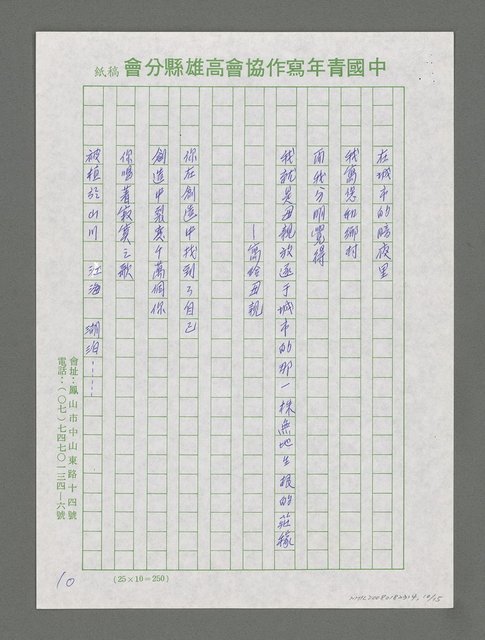 中國青年寫作協會高雄縣分會 稿紙
在城市的暗夜里
我寫您和鄉村
而我分明覺得
我就是母親放逐于城市的那一株無地生根的莊稼
—寫給母親
你在創造中找到了自己
創造中裂變千萬個你
你唱着寂寞之歌
被植於山川 江海 湖泊-----
會址：鳳山市中山東路十四號
電話：(〇七)七四七〇一三四—六號
(25×10=250)
10